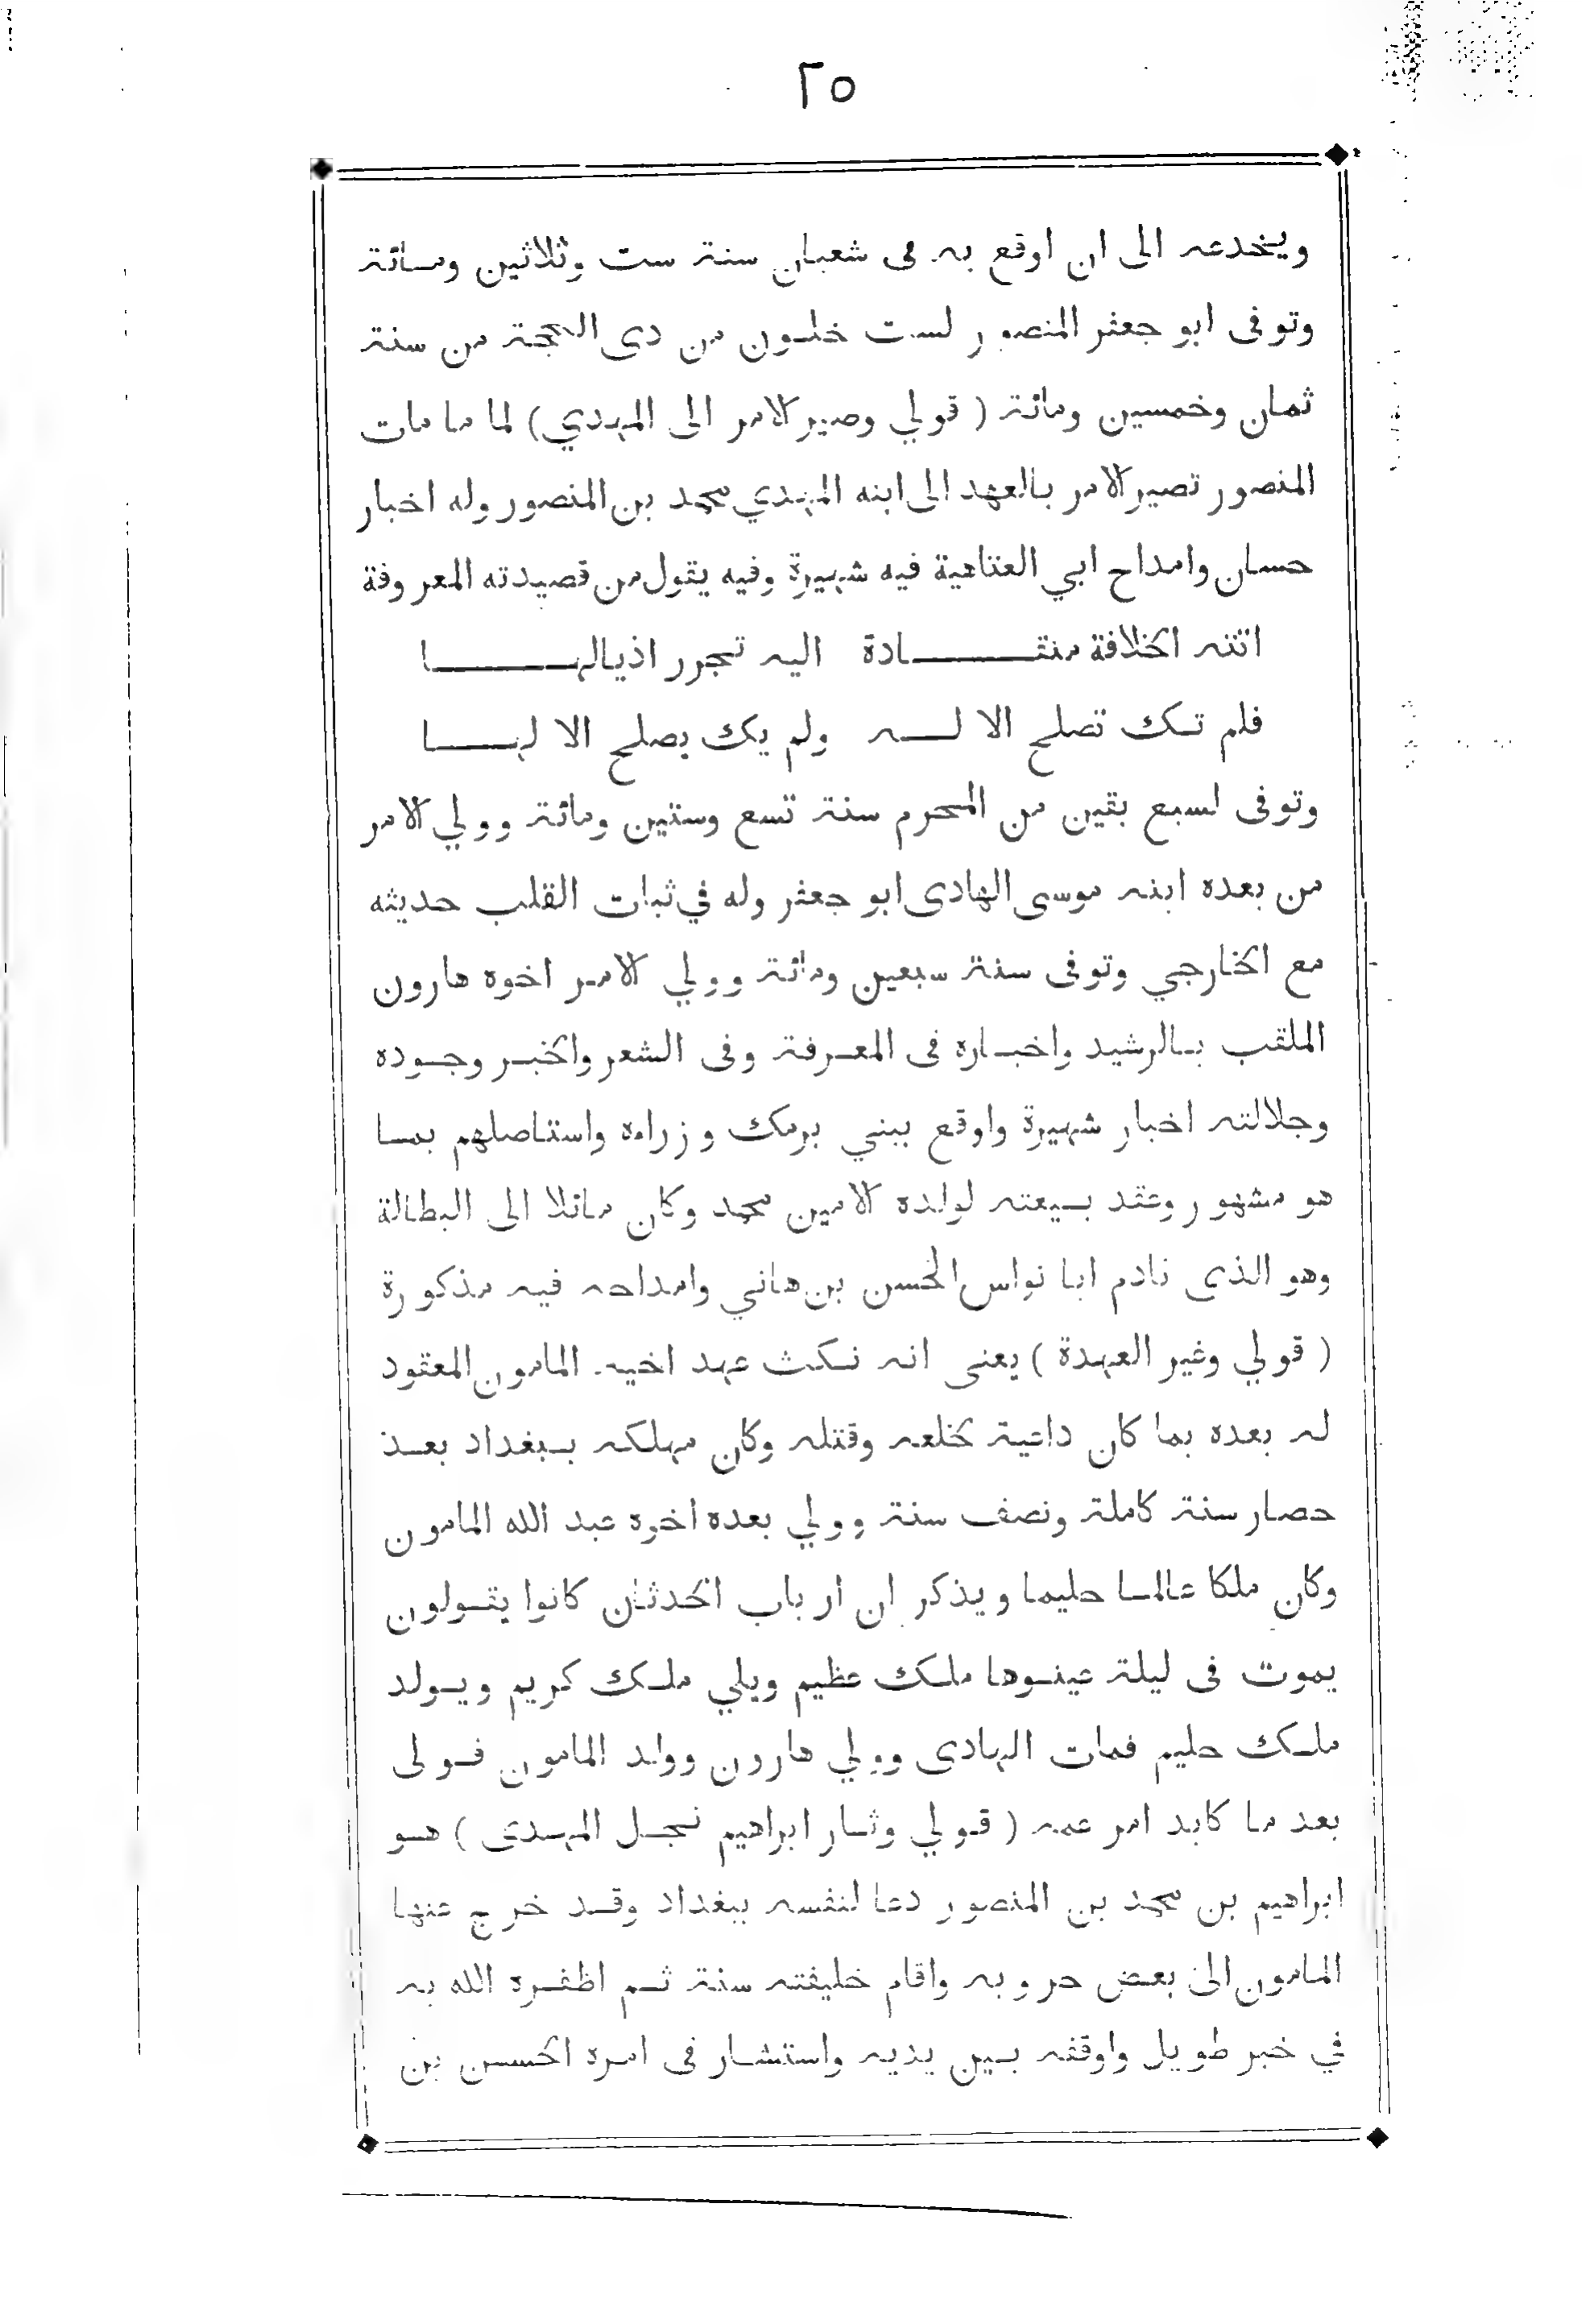 ٢٥
ويخدعه الى ان اوقع به فى شعبان سنة ست وثلاثين ومائة
وتوفى ابو جعفر المنصور لست خلون من ذى الحجة من سنة
ثمان وخمسين ومائة ( قولي وصير الامر الى المهدي) لما ما مات
المنصور تصير الامر بالعهد الى ابنه المهدي محمد بن المنصور وله اخبار
حسان وامداح ابي العتاهية فيه شهيرة وفيه يقول من قصيدته المعروفة
اتته الخلافة منقادة اليه تجرر اذيالها
فلم تك تصلح الا له ولم يك يصلح الا لها
وتوفى لسبع بقين من المحرم سنة تسع وستين ومائة وولي الامر
من بعده ابنه موسى الهادى ابو جعفر وله في ثبات القلب حديثه
مع الخارجي وتوفى سنة سبعين ومائة وولي الامر اخوه هارون
الملقب بالرشيد واخباره فى المعرفة وفى الشعر والخبر وجوده
وجلالته اخبار شهيرة واوقع ببني برمك وزراءه واستاصلهم بما
هو مشهور وعقد بيعته لولده الامين محمد وكان مائلا الى البطالة
وهو الذى نادم ابا نواس الحسن بن هاني وامداحه فيه مذكورة
( قولي وغير العهدة ) يعنى انه نكث عهد اخيه المامون المعقود
له بعده بما كان داعية لخلعه وقتله وكان مهلكه ببغداد بعد
حصار سنة كاملة ونصف سنة وولي بعده اخوه عبد الله المامون
وكان ملكا عالما حليما ويذكر ان ارباب الحدثان كانوا يقولون
يموت فى ليلة عينوها ملك عظيم ويلي ملك كريم ويولد
ملك حليم فمات الهادى وولي هارون وولد المامون فولى
بعد ما كابد امر عمه ( قولي وثار ابراهيم نجل المهدى ) هو
ابراهيم بن محمد بن المنصور دعا لنفسه ببغداد وقد خرج عنها
المامون الى بعض حروبه واقام خليفته سنة ثم اظفره الله به
في خبر طويل واوقفه بين يديه واستشار فى امره الحسن بن